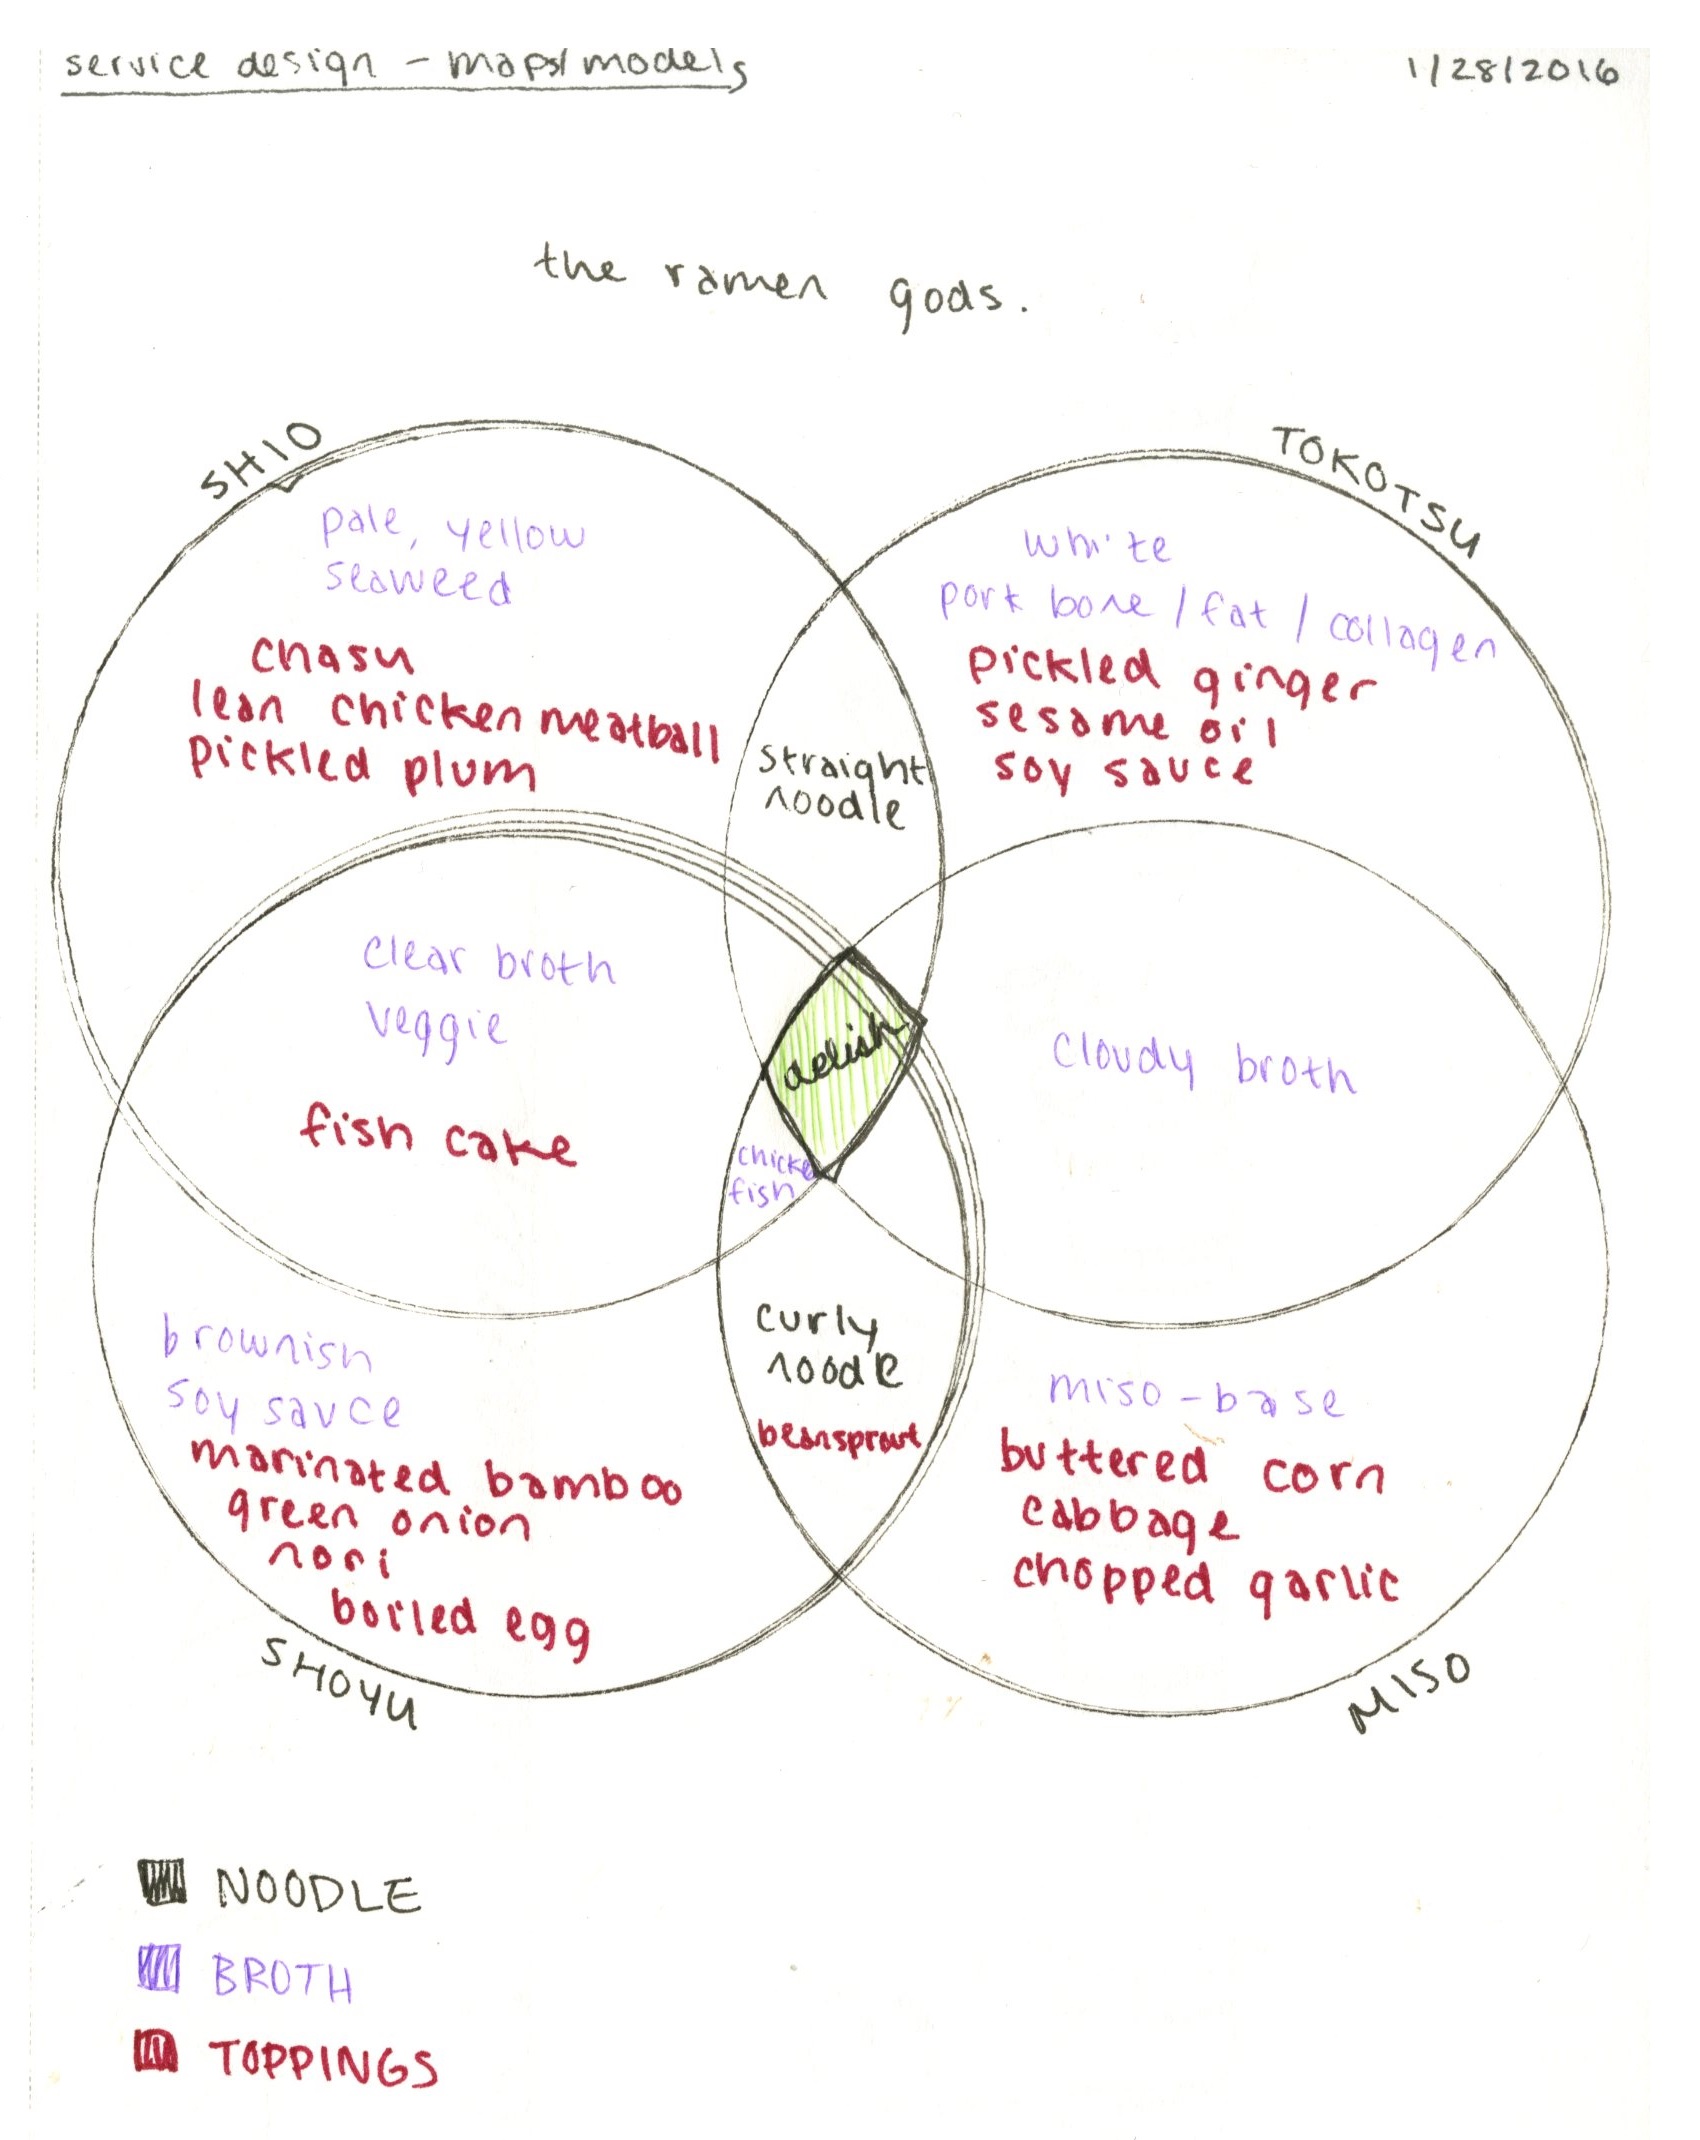 service design - maps/models
1/28/2016
the ramen gods.
SHIO
TOKOTSU
pale, yellow
seaweed
chasu
lean chicken meatball
pickled plum
white
pork bone / fat / collagen
pickled ginger
sesame oil
soy sauce
straight
noodle
clear broth
veggie
fish cake
delish
cloudy broth
chicke
fish
brownish
soy sauce
marinated bamboo
green onion
nori
boiled egg
curly
noodle
beansprout
miso-base
buttered corn
cabbage
chopped garlic
SHOYU
MISO
NOODLE
BROTH
TOPPINGS